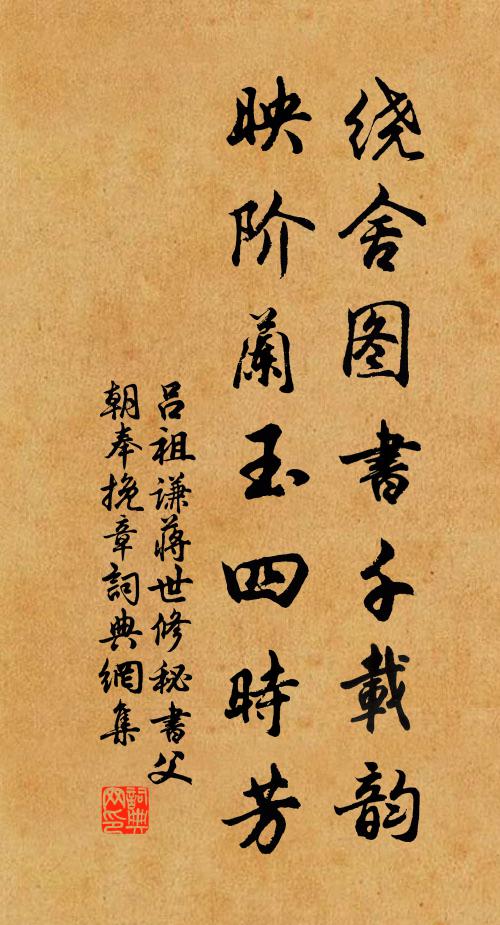 绕舍图书千载韵
映阶蘭玉四時芳
吕祖谦蒋世修秘書父
朝奉挽章詞典網集
詞典网印